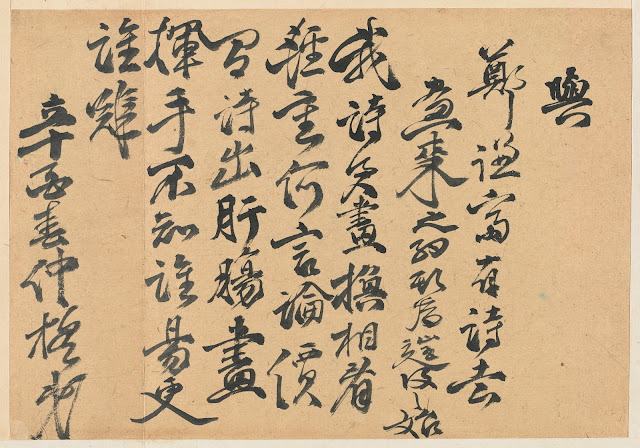 與
鄭謙齋有詩去
畵來之約期爲往復之始
我詩君畵換相看
輕重何言論價
間詩出肝腸畵
揮手不知誰易更
誰難
辛酉春仲槎弟